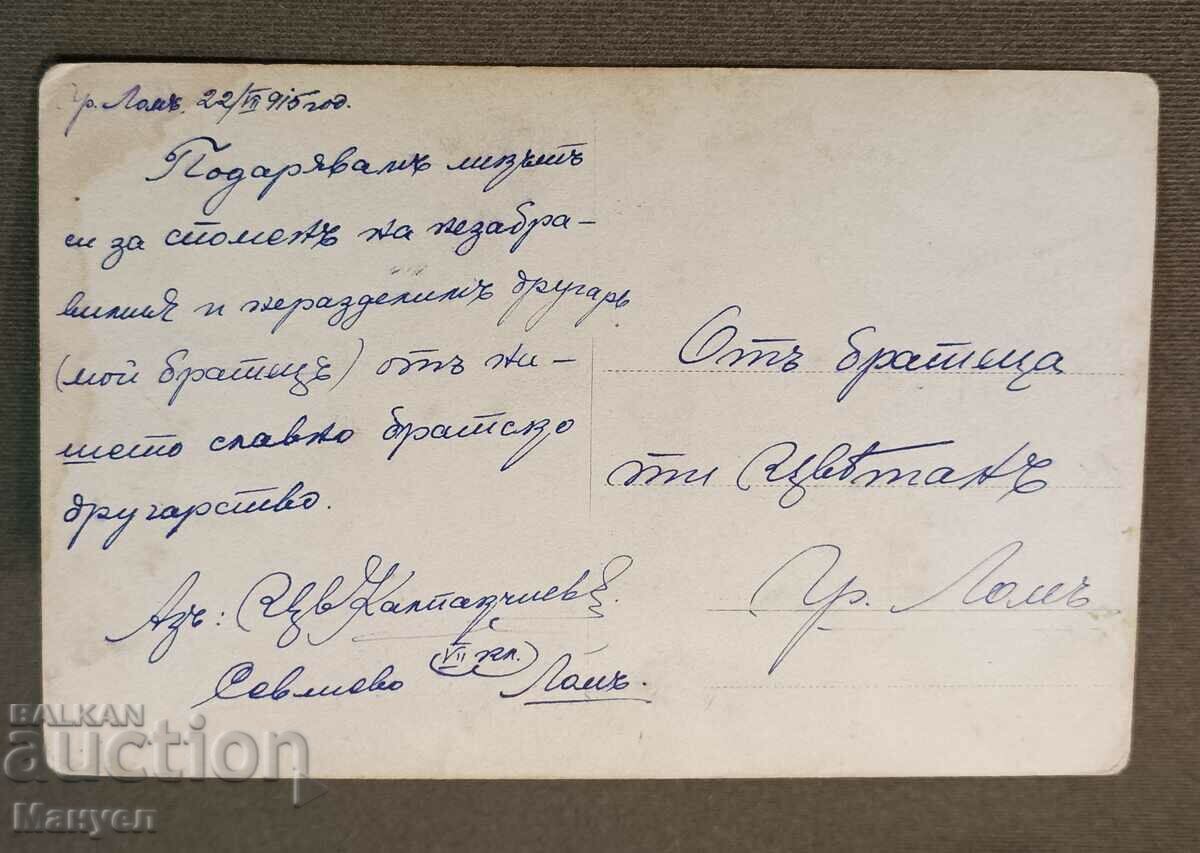 гр. Ломъ. 22/VII 915 год.
Подарявамъ ликътъ
си за споменъ на незабра-
вимия и неразделимъ другарь
(мой братецъ) отъ на-
шето славно братско
другарство.
Азъ: Цв Калпакчиевъ.
Севлиево (VII кл.) Ломъ.
Отъ братеца
ти Цвѣтанъ
Гр. Ломъ
BALKAN
auction
Мануел